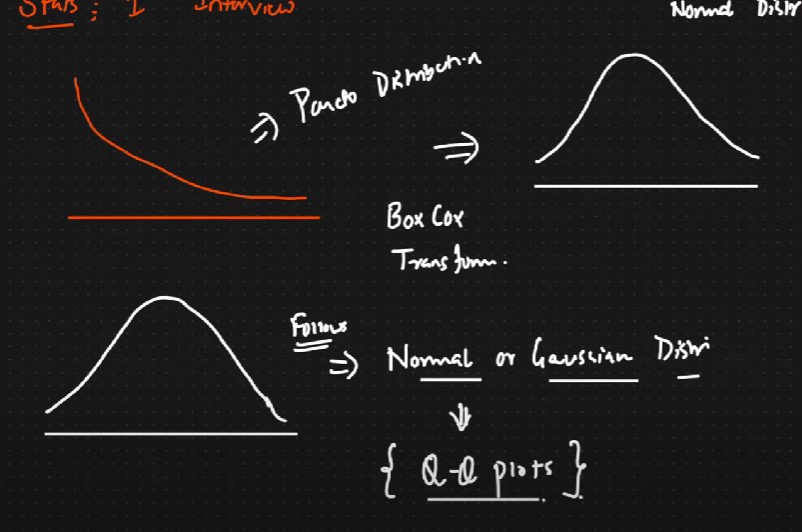 Stats : I Interview
Normal Distr
⇒ Pareto Distribution
⇒
Box Cox
Transform.
Follows
⇒ Normal or Gaussian Distri
⇓
{ Q-Q plots }